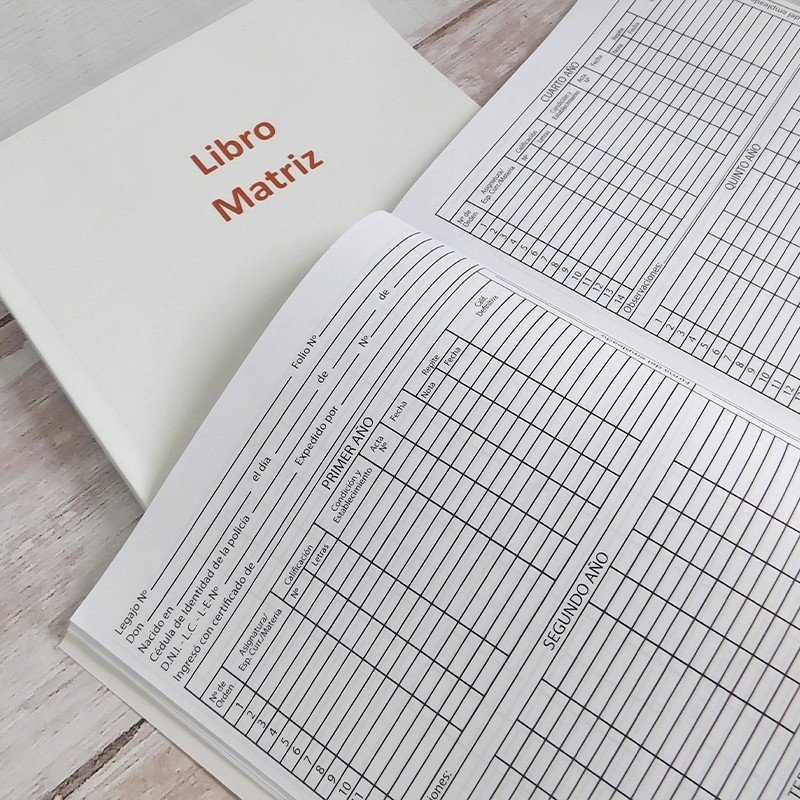 Libro
Matriz
Legajo Nº Folio Nº
Don
Nacido en el día de de
Cédula de identidad de la policía
D.N.I. - L.C. - L-E.Nº Expedido por Nº
Ingresó con certificado de
PRIMER AÑO
Nº de Orden
Asignatura/ Esp. Curr./Materia
Calificación
Nº Letras
Condición y Establecimiento
Acta Nº
Fecha
Repite
Nota Fecha
Calif. Definitiva
1
2
3
4
5
6
7
8
9
10
SEGUNDO AÑO
CUARTO AÑO
Nº de Orden
Asignatura/ Esp. Curr./Materia
Calificación
Nº Letras
Condición y Establecimiento
Acta Nº
Fecha
Repite
Nota Fecha
1
2
3
4
5
6
7
8
9
10
11
12
13
14
Observaciones:
QUINTO AÑO
1
2
3
4
5
6
7
8
9
10
11
12
Firma del empleado
del empleado